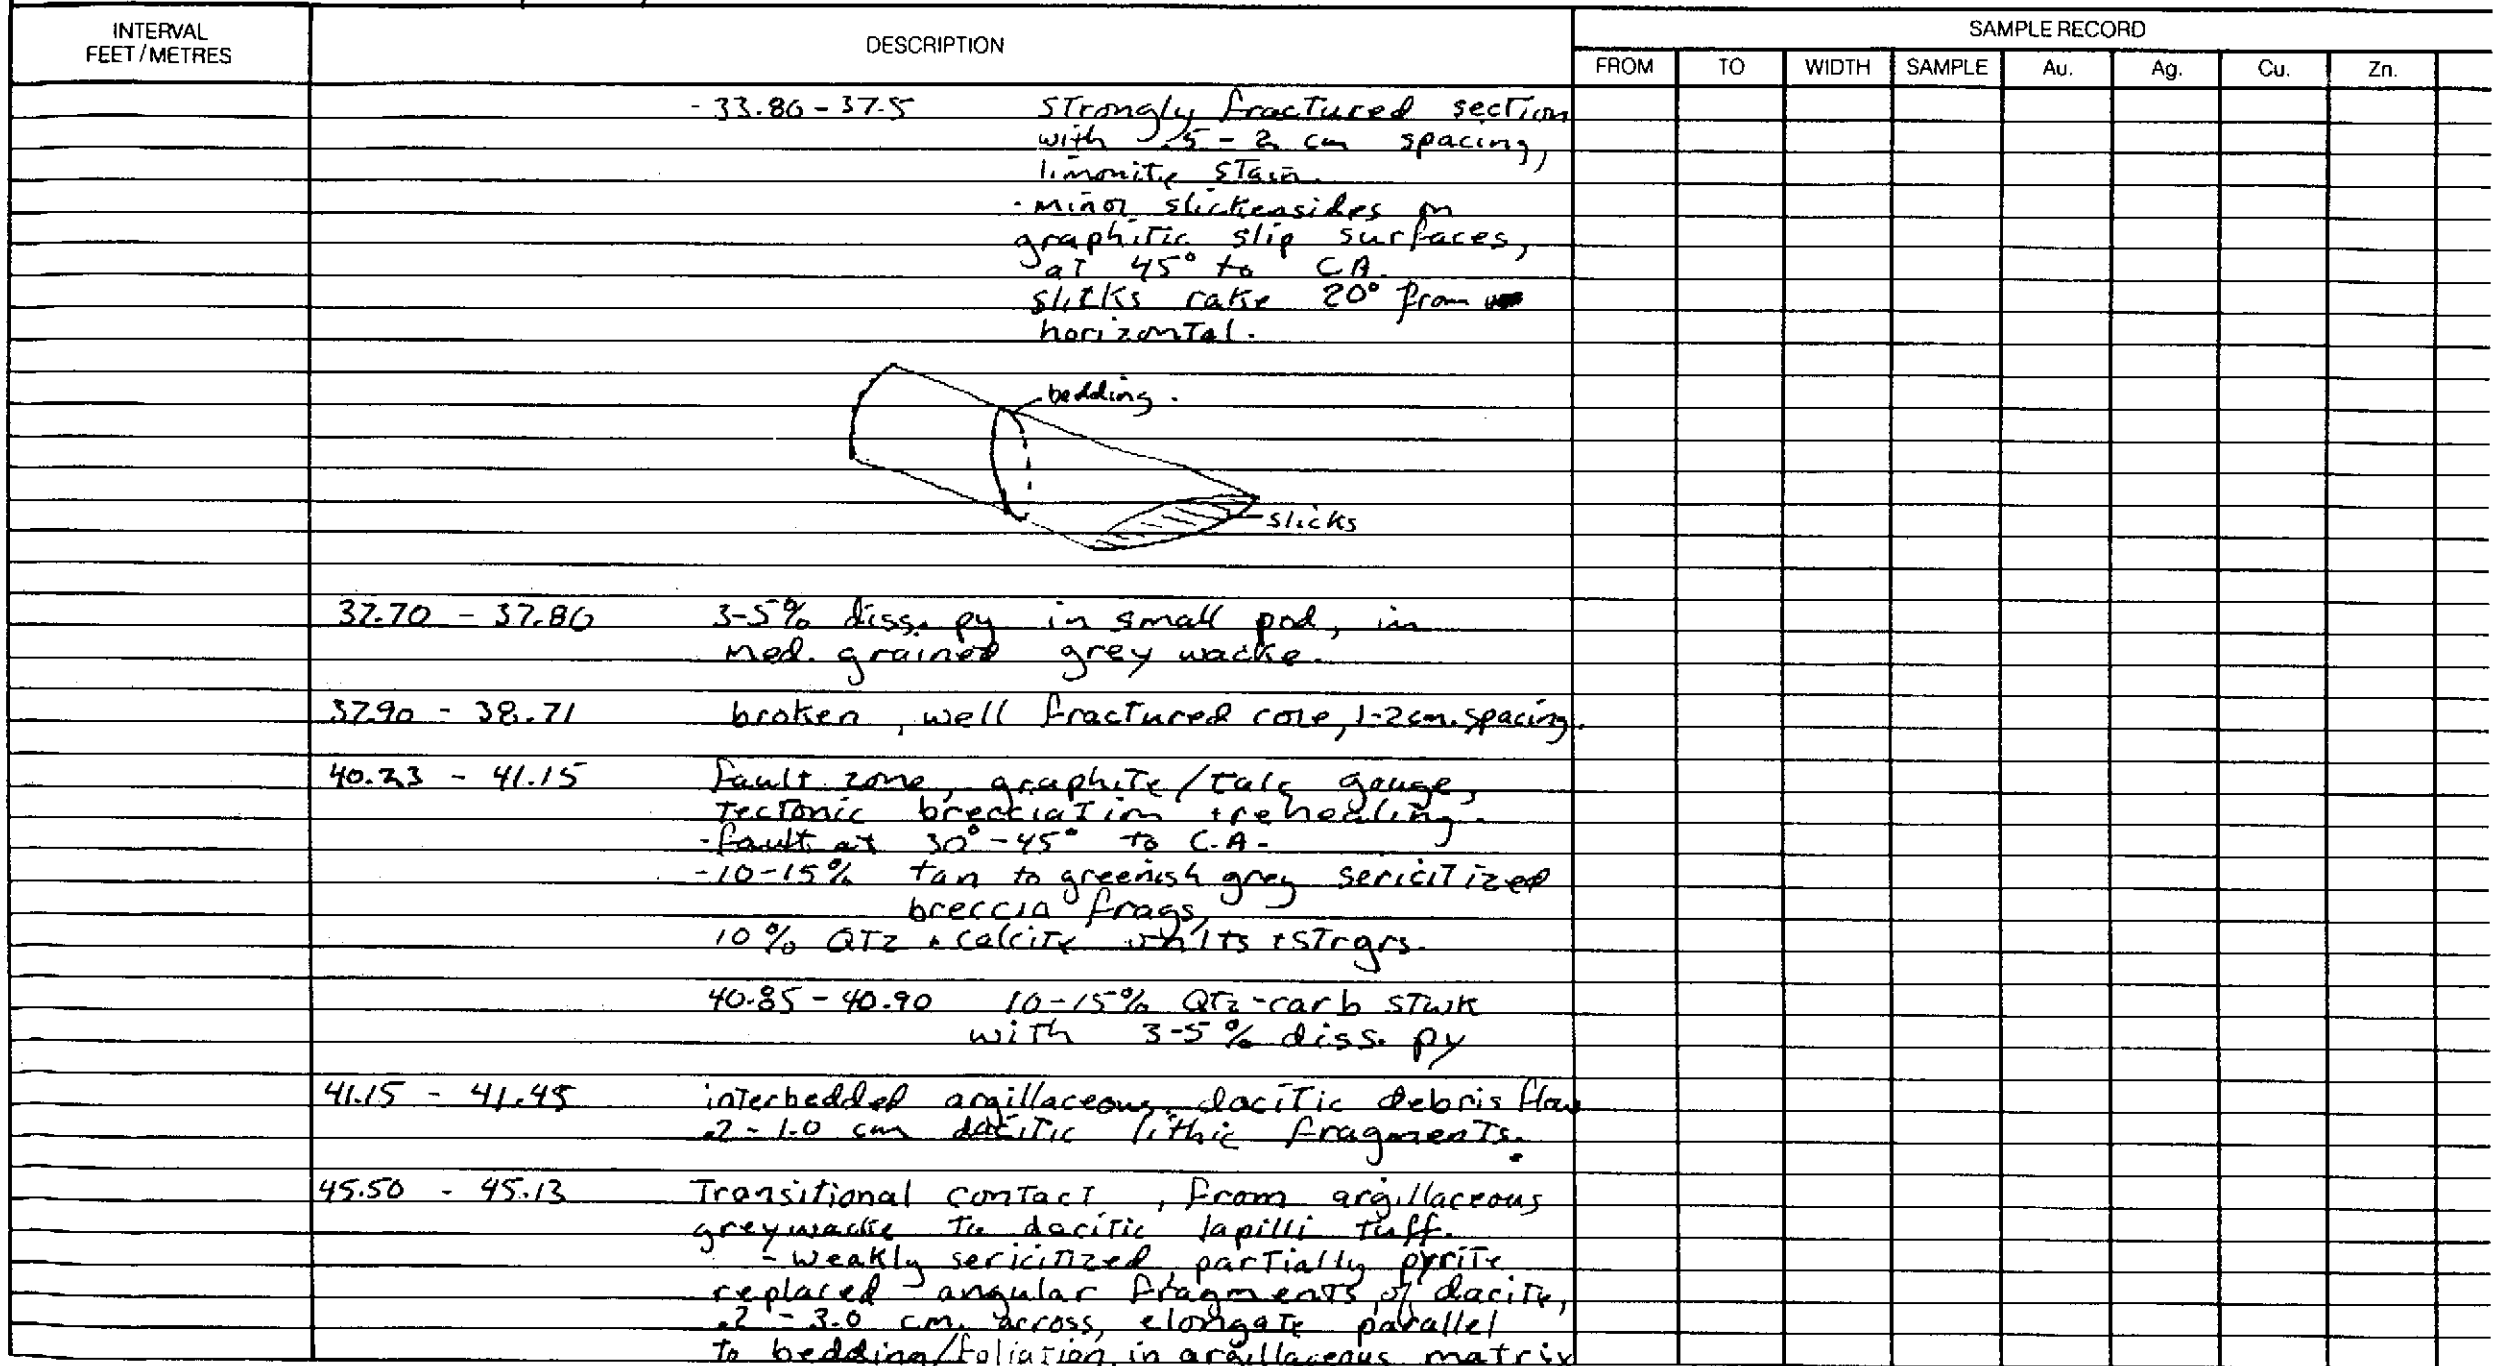 INTERVAL
FEET/METRES
DESCRIPTION
SAMPLE RECORD
FROM TO WIDTH SAMPLE Au. Ag. Cu. Zn.
- 33.86 - 37.5 Strongly fractured section
with .5 - 2 cm spacing,
limonite stain.
- minor slickensides on
graphitic slip surfaces,
at 45° to C.A.
slicks rake 20° from
horizontal.
bedding.
slicks
37.70 - 37.86 3-5% diss. py in small pod, in
med. grained grey wacke.
37.90 - 38.71 broken, well fractured core, 1-2cm. spacing.
40.23 - 41.15 fault zone, graphite/talc gouge,
tectonic brecciation + rehealing.
- fault at 30° - 45° to C.A.
- 10-15% tan to greenish grey sericitized
breccia frags,
10% QTz + calcite vnlts + strgrs.
40.85 - 40.90 10-15% QTz-carb stwk
with 3-5% diss. py
41.15 - 41.45 interbedded argillaceous, dacitic debris flow
.2 - 1.0 cm dacitic lithic fragments.
45.50 - 45.13 Transitional contact, from argillaceous
greywacke to dacitic lapilli tuff.
- weakly sericitized, partially pyrite
replaced angular fragments of dacite,
.2 - 3.0 cm. across, elongate parallel
to bedding/foliation in argillaceous matrix